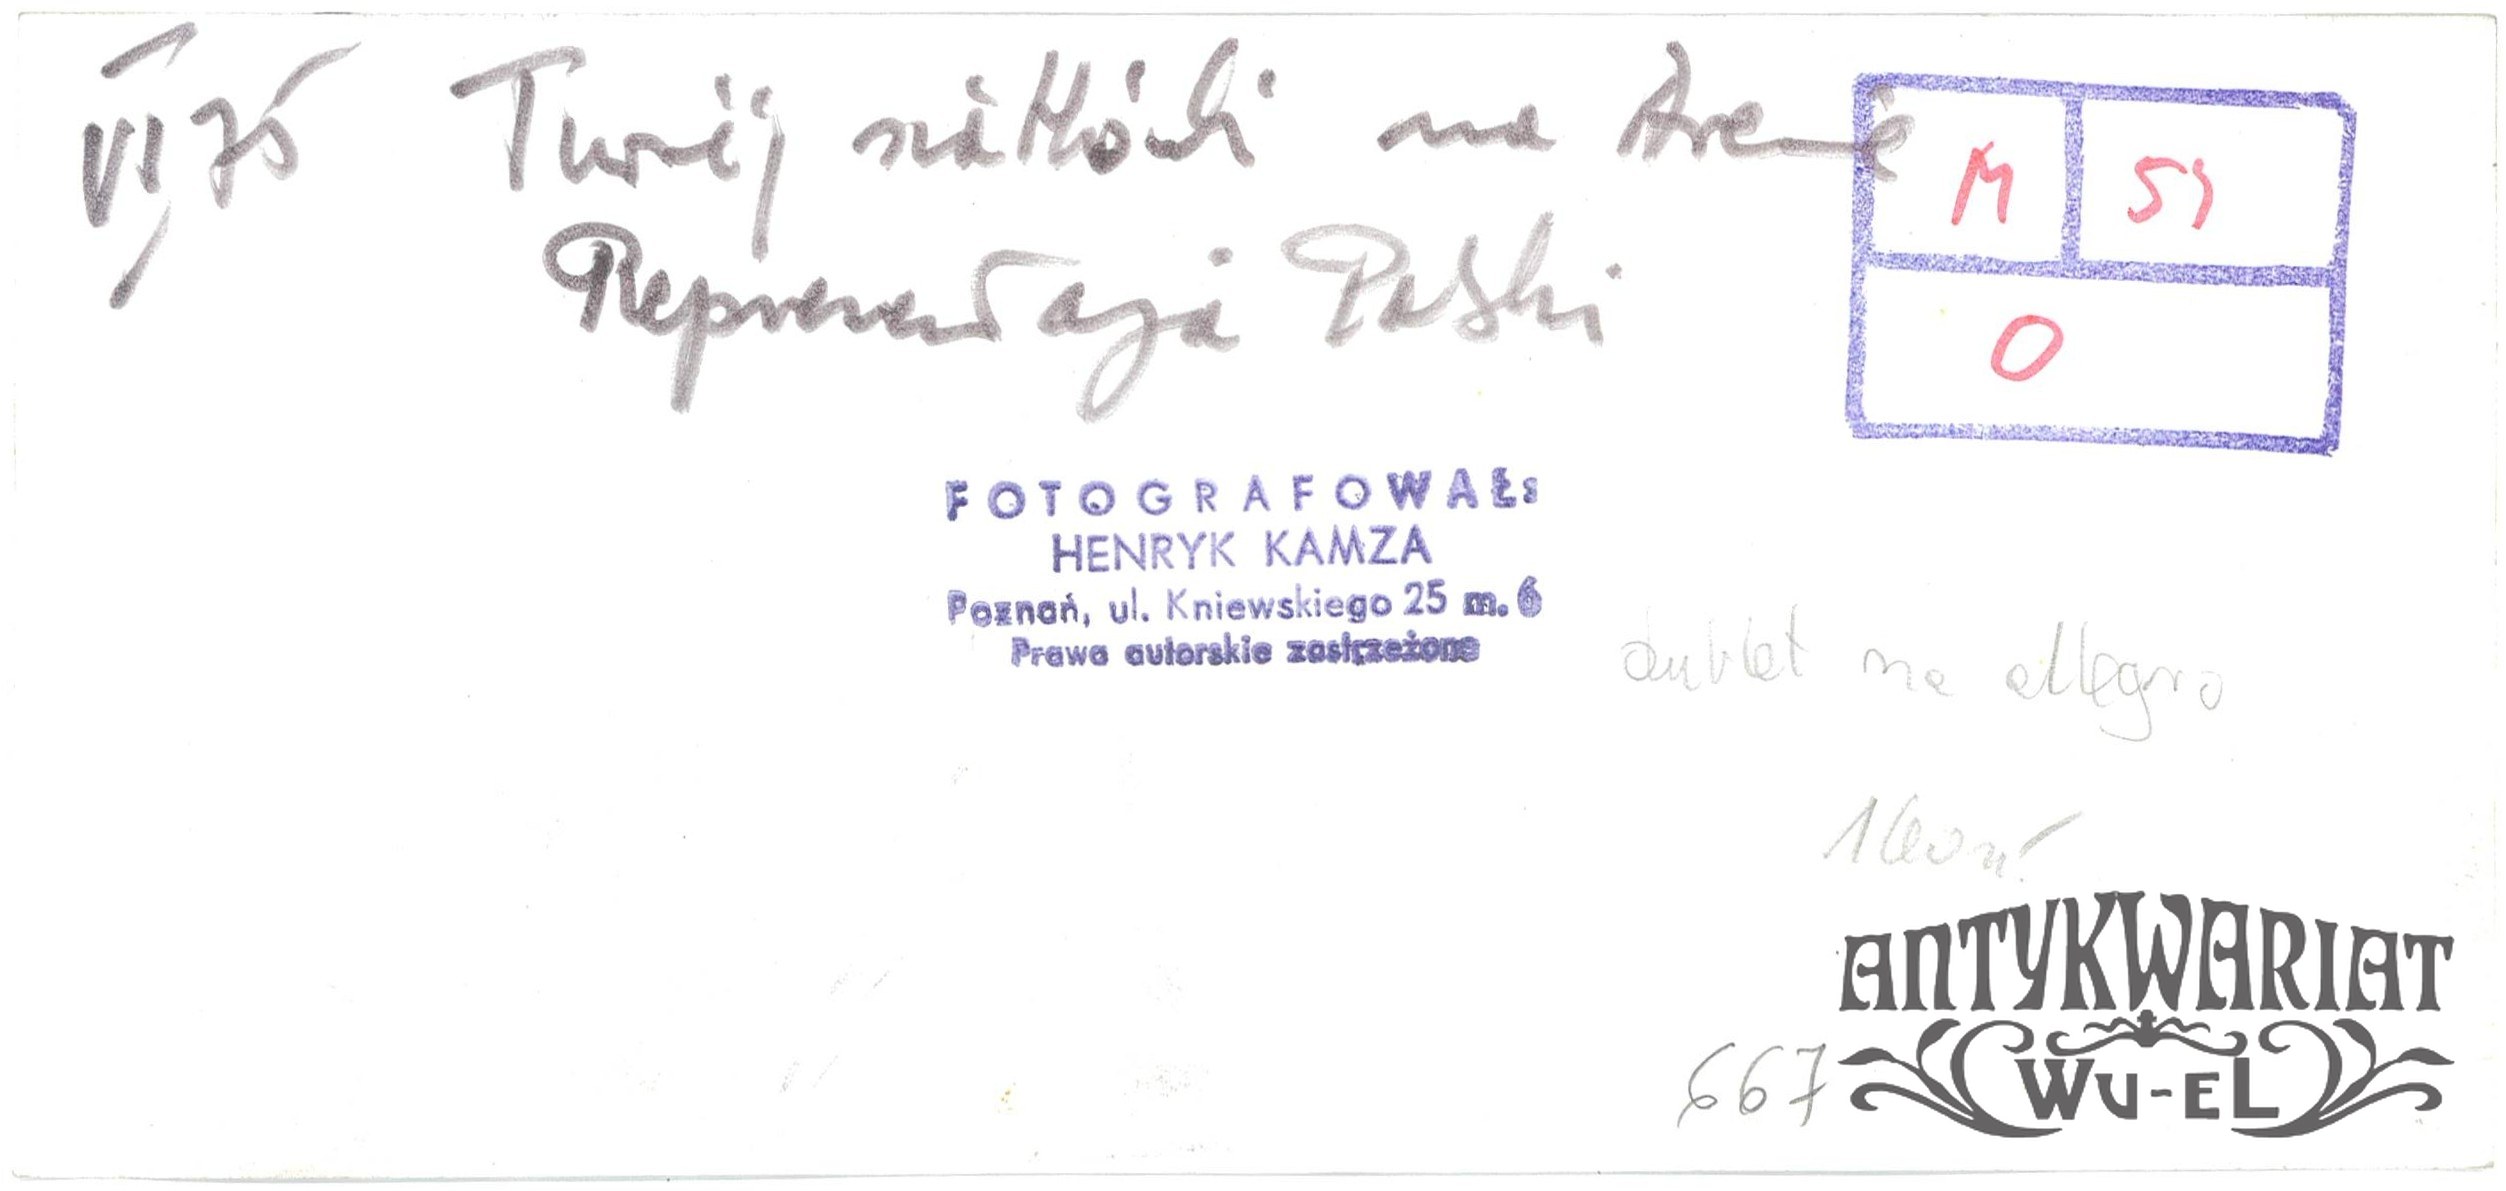 VI 75 Turniej siatkówki na Arenie
Reprezentacja Polski
M 51
O
FOTOGRAFOWAŁ:
HENRYK KAMZA
Poznań, ul. Kniewskiego 25 m. 6
Prawa autorskie zastrzeżone
dublet na allegro
667
ANTYKWARIAT
WU-EL